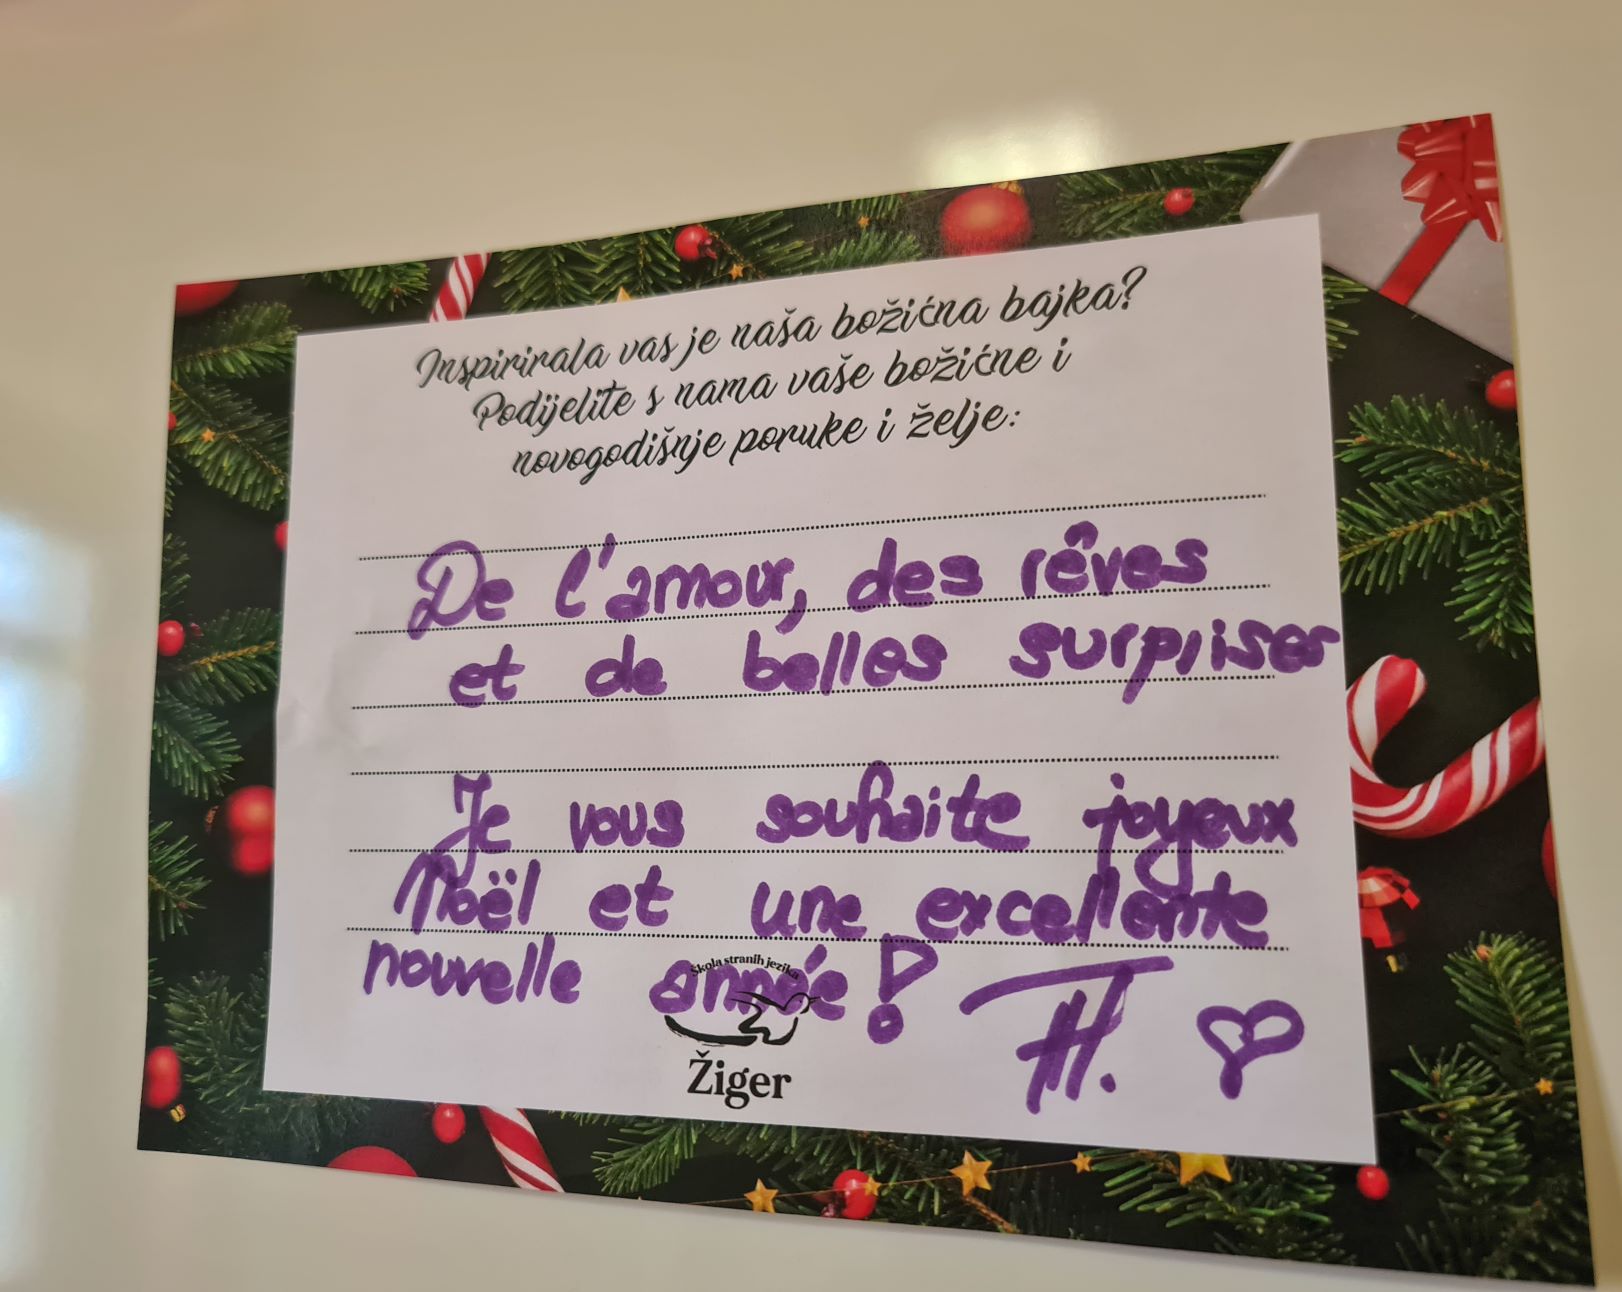 Inspirirala vas je naša božićna bajka?
Podijelite s nama vaše božićne i
novogodišnje poruke i želje:
De l'amour, des rêves
et de belles surprises
Je vous souhaite joyeux
Noël et une excellente
nouvelle année!
H.
Škola stranih jezika
Žiger